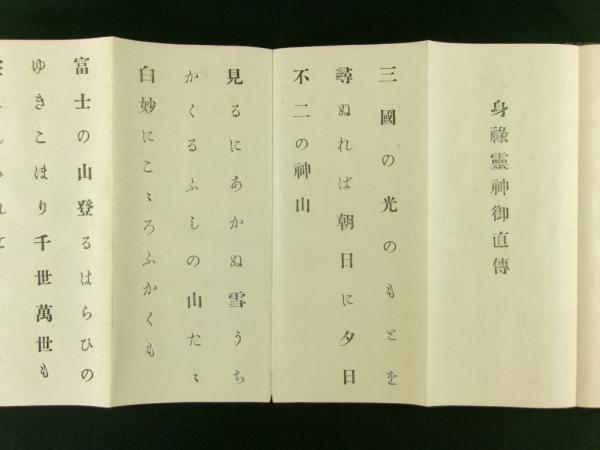 身祿靈神御直傳
三國の光のもとを
尋ぬれば朝日に夕日
不二の神山
見るにあかぬ雪うち
かくるふしの山たゞ
白妙にこゝろふかくも
富士の山登るはらひの
ゆきこはり千世萬世も